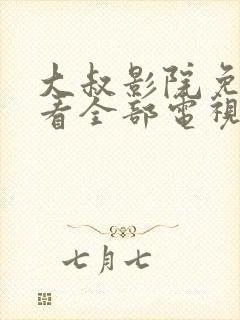 大叔影院免
看全部電視
七月七